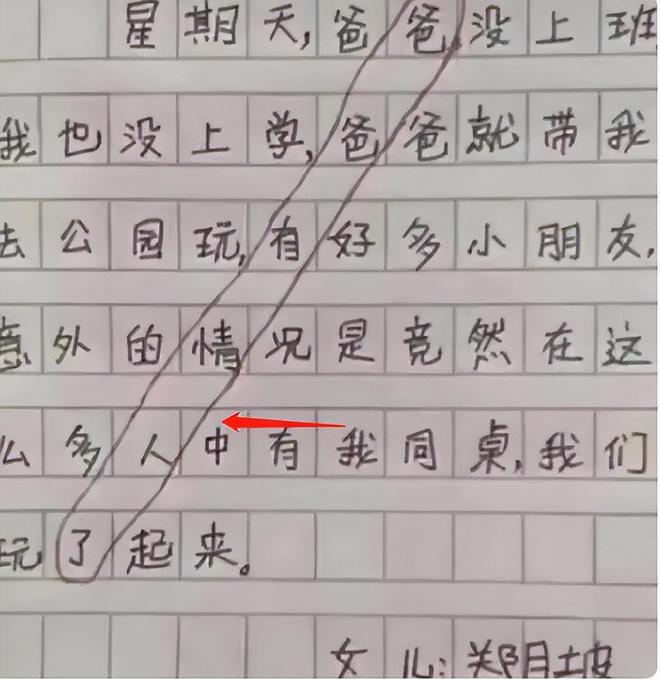 星期天,爸爸没上班
我也没上学,爸爸就带我
去公园玩,有好多小朋友,
意外的情况是竟然在这
么多人中有我同桌,我们
玩了起来。
女儿:郑